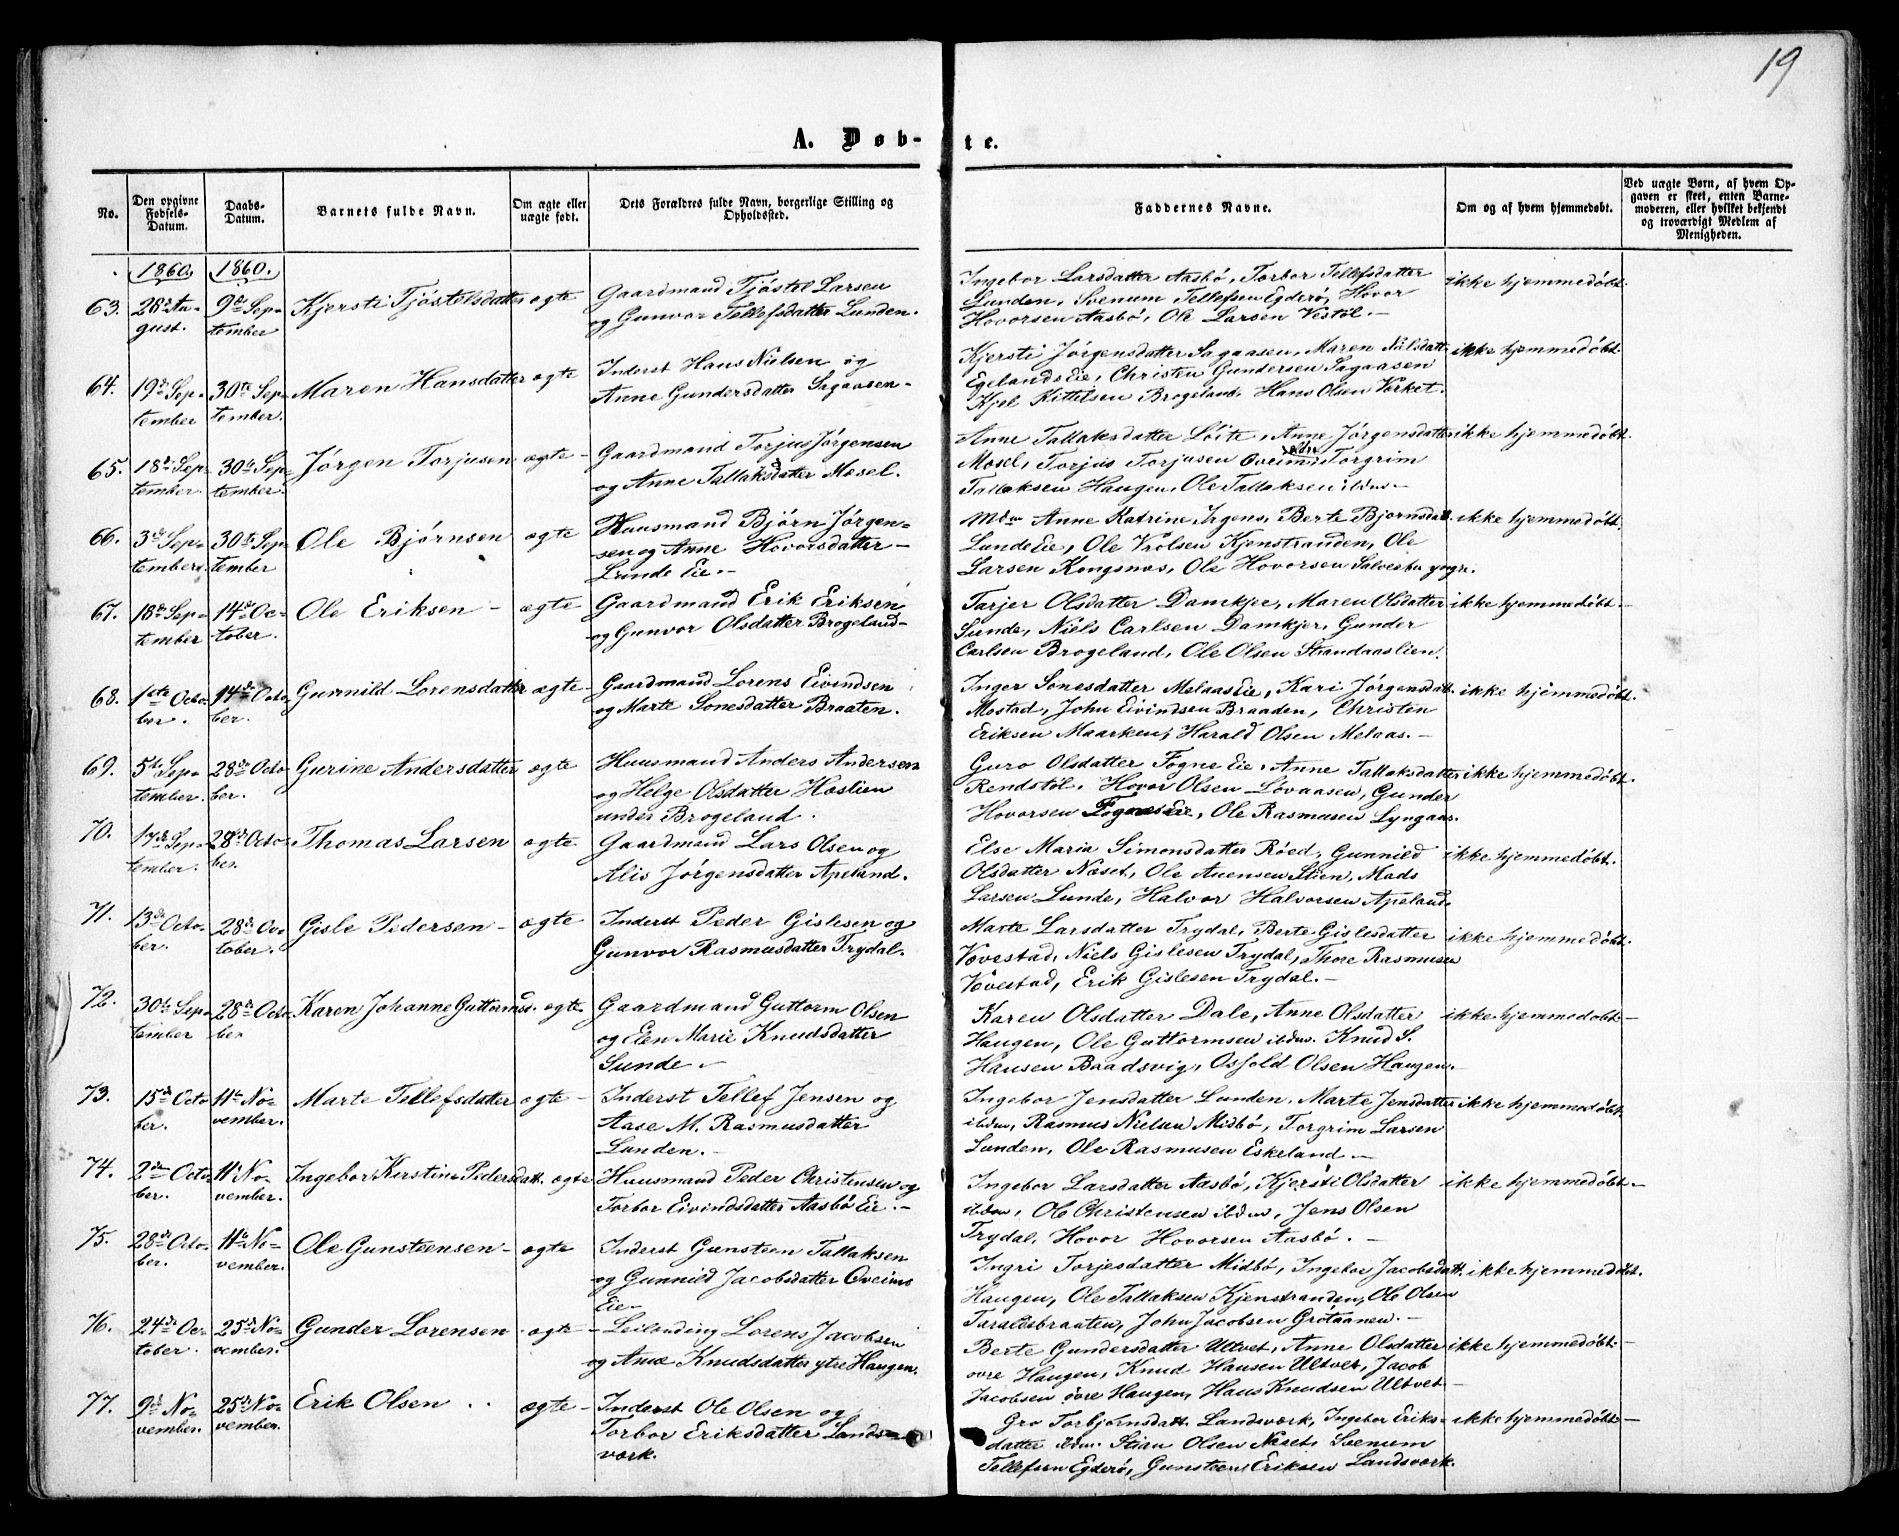 19
A. Døb-
te.
No.
Den opgivne Fødsels-Datum.
Daabs-Datum.
Barnets fulde Navn.
Om ægte eller uægte født.
Dets Forældres fulde Navn, borgerlige Stilling og Opholdsted.
Faddernes Navne.
Om og af hvem hjemmedøbt.
Ved uægte Børn, af hvem Op-
gaven er skeet, enten Barne-
moderen, eller hvilket bekjendt
og troværdigt Medlem af
Menigheden.
1860. 1860.
63. 28de Au-
gust.
9de Sep-
tember
Kjersti Tjøstelsdatter ægte
Gaardmand Tjøstel Larsen
og Gunvor Tellefsdatter Lunden.
Ingebor Larsdatter Aasbø, Torbor Tellefsdatter
Lunden, Svenum Tellefsen Egderø, Hovor
Hovorsen Aasbø, Ole Larsen Vestøl.-
ikke hjemmedøbt.
64. 19de Sep-
tember
30te Sep-
tember.
Maren Hansdatter ægte
Inderst Hans Nielsen og
Anne Gundersdatter Sagaasen-
Kjersti Jørgensdatter Sagaasen, Maren Nilsdatt.
Egelands Eie, Christen Gundersen Sagaasen
Kjel Kittelsen Brogeland, Hans Olsen Verket.
ikke hjemmedøbt.
65. 18de Sep-
tember.
30te Sep-
tember.
Jørgen Torjusen ægte-
Gaardmand Torjus Jørgensen
og Anne Tallaksdatter Mosel.
Anne Tallaksdatter Löite, Anne Jørgensdatter
Mosel, Torjus Torjusen Oveim, Torgrim
Tallaksen Haugen, Ole Tallaksen ibdm-
ikke hjemmedøbt.
66. 3de Sep-
tember.
30te Sep-
tember
Ole Bjørnsen ægte
Huusmand Bjørn Jørgen-
sen og Anne Hovorsdatter-
Lunde Eie.-
Mdm Anne Katrine Irgens, Berte Bjørnsdatt.
Lunde Eie, Ole Vrolsen Kjenstranden, Ole
Larsen Kongsnæs, Ole Hovorsen
ikke hjemmedøbt.
67. 18de Sep-
tember
14de Oc-
tober.
Ole Eriksen- ægte
Gaardmand Erik Eriksen
og Gunvor Olsdatter Brogeland-
Tarjer Olsdatter Damkjer, Maren Olsdatter
Sunde, Niels Carlsen Damkjer, Gunder
Carlsen Brogeland, Ole Olsen Strandaaslien.
ikke hjemmedøbt-
68. 1ste Octo-
ber.
14de Octo-
ber.
Gunnild Lorensdatter ægte-
Gaardmand Lorens Eivindsen
og Marte Sonesdatter Braaten.
Inger Sonesdatter Melaas Eie, Kari Jørgensdatt.
Mostad, John Eivindsen Braaden, Christen
Eriksen Maarken, Harald Olsen Melaas.-
ikke hjemmedøbt.
69. 5te Sep-
tember.
28de Octo-
ber.
Gurine Andersdatter ægte
Huusmand Anders Andersen
og Helge Olsdatter Hæslien
under Brogeland.
Guro Olsdatter Fogne Eie, Anne Tallaksdatter
Rendstøl, Hovor Olsen Løvaasen, Gunder
Hovorsen Fognes Eie, Ole Rasmusen Lyngaas.
ikke hjemmedøbt.
70. 17de Sep-
tember.
28de Octo-
ber.
Thomas Larsen ægte
Gaardmand Lars Olsen og
Alis Jørgensdatter Apeland.
Else Maria Simonsdatter Røed, Gunnild
Olsdatter Næset, Ole Auensen Stien, Mads
Larsen Lunde, Halvor Halvorsen Apeland.
ikke hjemmedøbt.
71. 13de Octo-
ber.
28de Oc-
tober.
Gisle Pedersen- ægte
Inderst Peder Gislesen og
Gunvor Rasmusdatter Trydal.
Marte Larsdatter Trydal, Berte Gislesdatter
Vovestad, Niels Gislesen Trydal, Thore Rasmusen
Vovestad, Erik Gislesen Trydal.-
ikke hjemmedøbt.
72. 30te Sep-
tember
28de Octo-
ber
Karen Johanne Guttormsd. ægte
Gaardmand Guttorm Olsen
og Elen Marie Knudsdatter
Sunde.-
Karen Olsdatter Dale, Anne Olsdatter
Haugen, Ole Guttormsen ibdm. Knud S.
Hansen Baadsvig, Osfold Olsen Haugen.
ikke hjemmedøbt-
73. 15de Octo-
ber.
11te No-
vember.
Marte Tellefsdatter ægte-
Inderst Tellef Jensen og
Aase M. Rasmusdatter
Lunden.-
Ingebor Jensdatter Lunden, Marte Jensdatter
ibdm, Rasmus Nielsen Midbø, Torgrim Larsen
Lunden, Ole Rasmusen Eskeland.-
ikke hjemmedøbt.
74. 2den Octo-
ber.
11te No-
vember.
Ingebor Kirstine Pedersdatt. ægte
Huusmand Peder Christensen og
Torbor Eivindsdatter Aasbø Eie.-
Ingebor Larsdatter Aasbø, Kjersti Olsdatter
ibdm, Ole Christensen ibdm, Jens Olsen
Trydal, Hovor Hovorsen Aasbø.-
ikke hjemmedøbt-
75. 28de Octo-
ber.
11te No-
vember.
Ole Gunsteensen- ægte
Inderst Gunsteen Tallaksen
og Gunnild Jacobsdatter Oveims
Eie-
Ingri Torjesdatter Midbø, Ingebor Jacobsdatt.
Haugen, Ole Tallaksen Kjenstranden, Ole Olsen
Taraldsbraaten, John Jacobsen Grötaanen.-
ikke hjemmedøbt.
76. 24de Oc-
tober.
25de No-
vember.
Gunder Lorensen ægte
-Leilænding Lorens Jacobsen
og Anne Knudsdatter ytre Haugen.
Berte Gundersdatter Ultvet, Anne Olsdatter
øvre Haugen, Knud Hansen Ultvet, Jacob
Jacobsen øvre Haugen, Hans Knudsen Ultvet-
ikke hjemmedøbt-
77. 9de No-
vember.
25de No-
vember.
Erik Olsen ægte-
Inderst Ole Olsen og
Torbor Eriksdatter Lands-
værk.
Gro Torbjørnsdatt. Landsværk, Ingebor Eriks-
datter ibdm. Stian Olsen Næset, Svenum
Tellefsen Egderø, Gunsteen Eriksen Landsværk.
ikke hjemmedøbt-